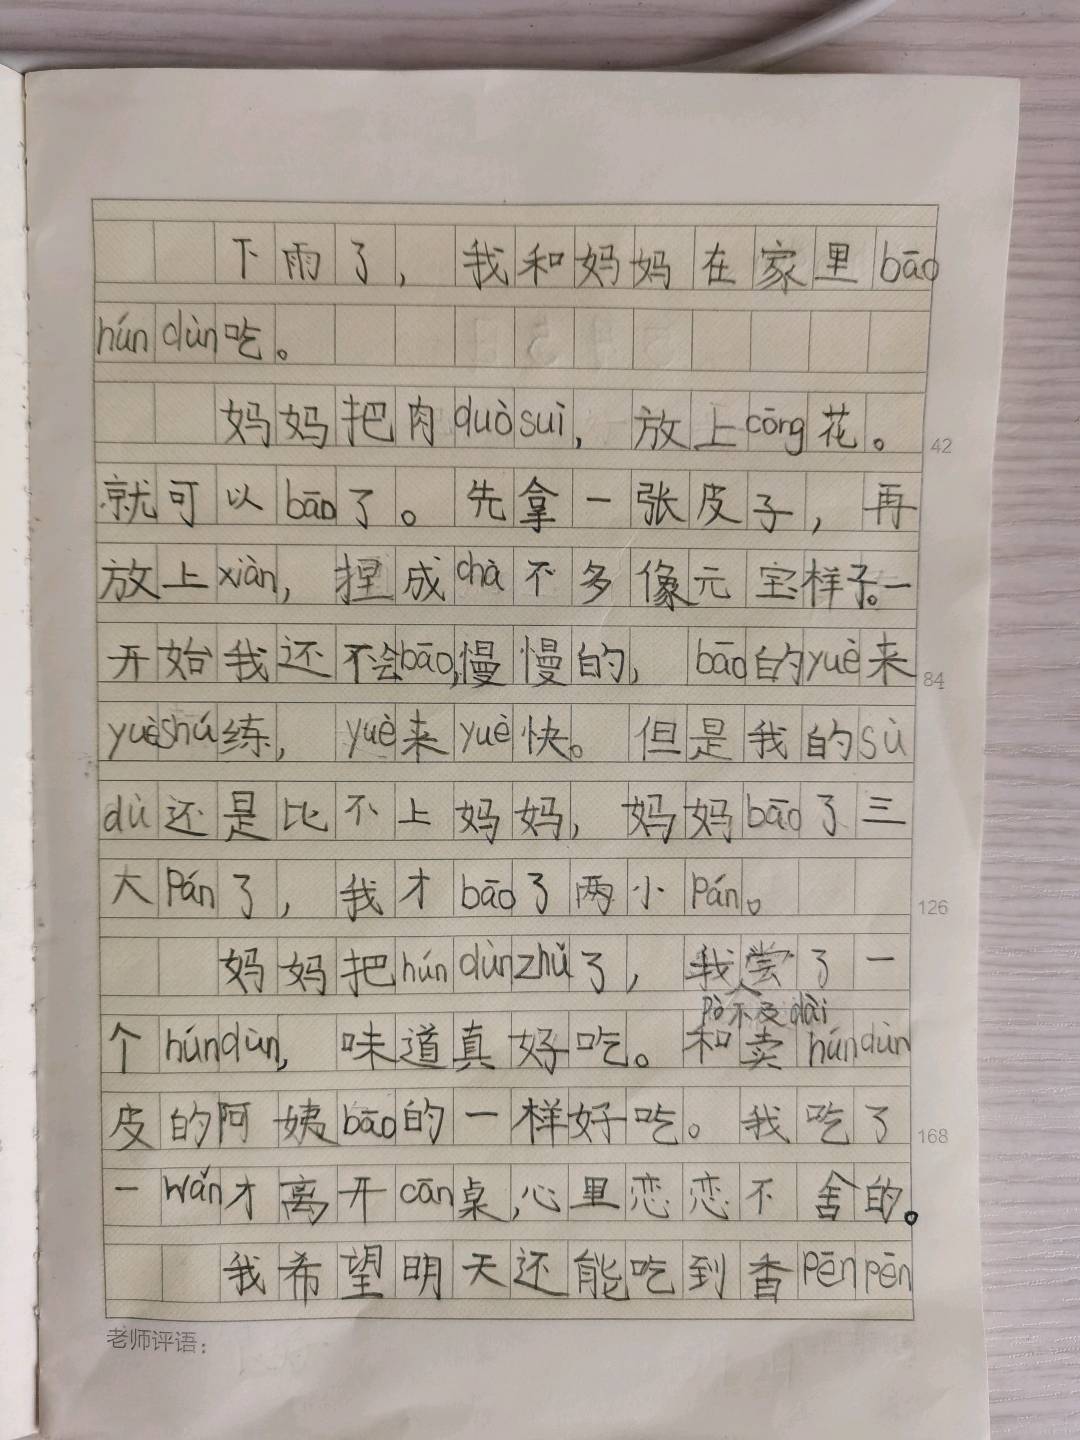 下雨了，我和妈妈在家里bāo
húndùn吃。
妈妈把肉duòsuì，放上cōng花。
42
就可以bāo了。先拿一张皮子，再
放上xiàn，捏成chà不多像元宝样子。一
开始我还不会bāo，慢慢的，bāo的yuè来
84
yuèshú练，yuè来yuè快。但是我的sù
dù还是比不上妈妈，妈妈bāo了三
大Pán了，我才bāo了两小Pán。
126
妈妈把húndùnzhǔ了，我尝了一
Pò不及dài
个húndùn，味道真好吃。和卖húndùn
皮的阿姨bāo的一样好吃。我吃了
168
一wǎn才离开cān桌，心里恋恋不舍的。
我希望明天还能吃到香Pēnpēn
老师评语：